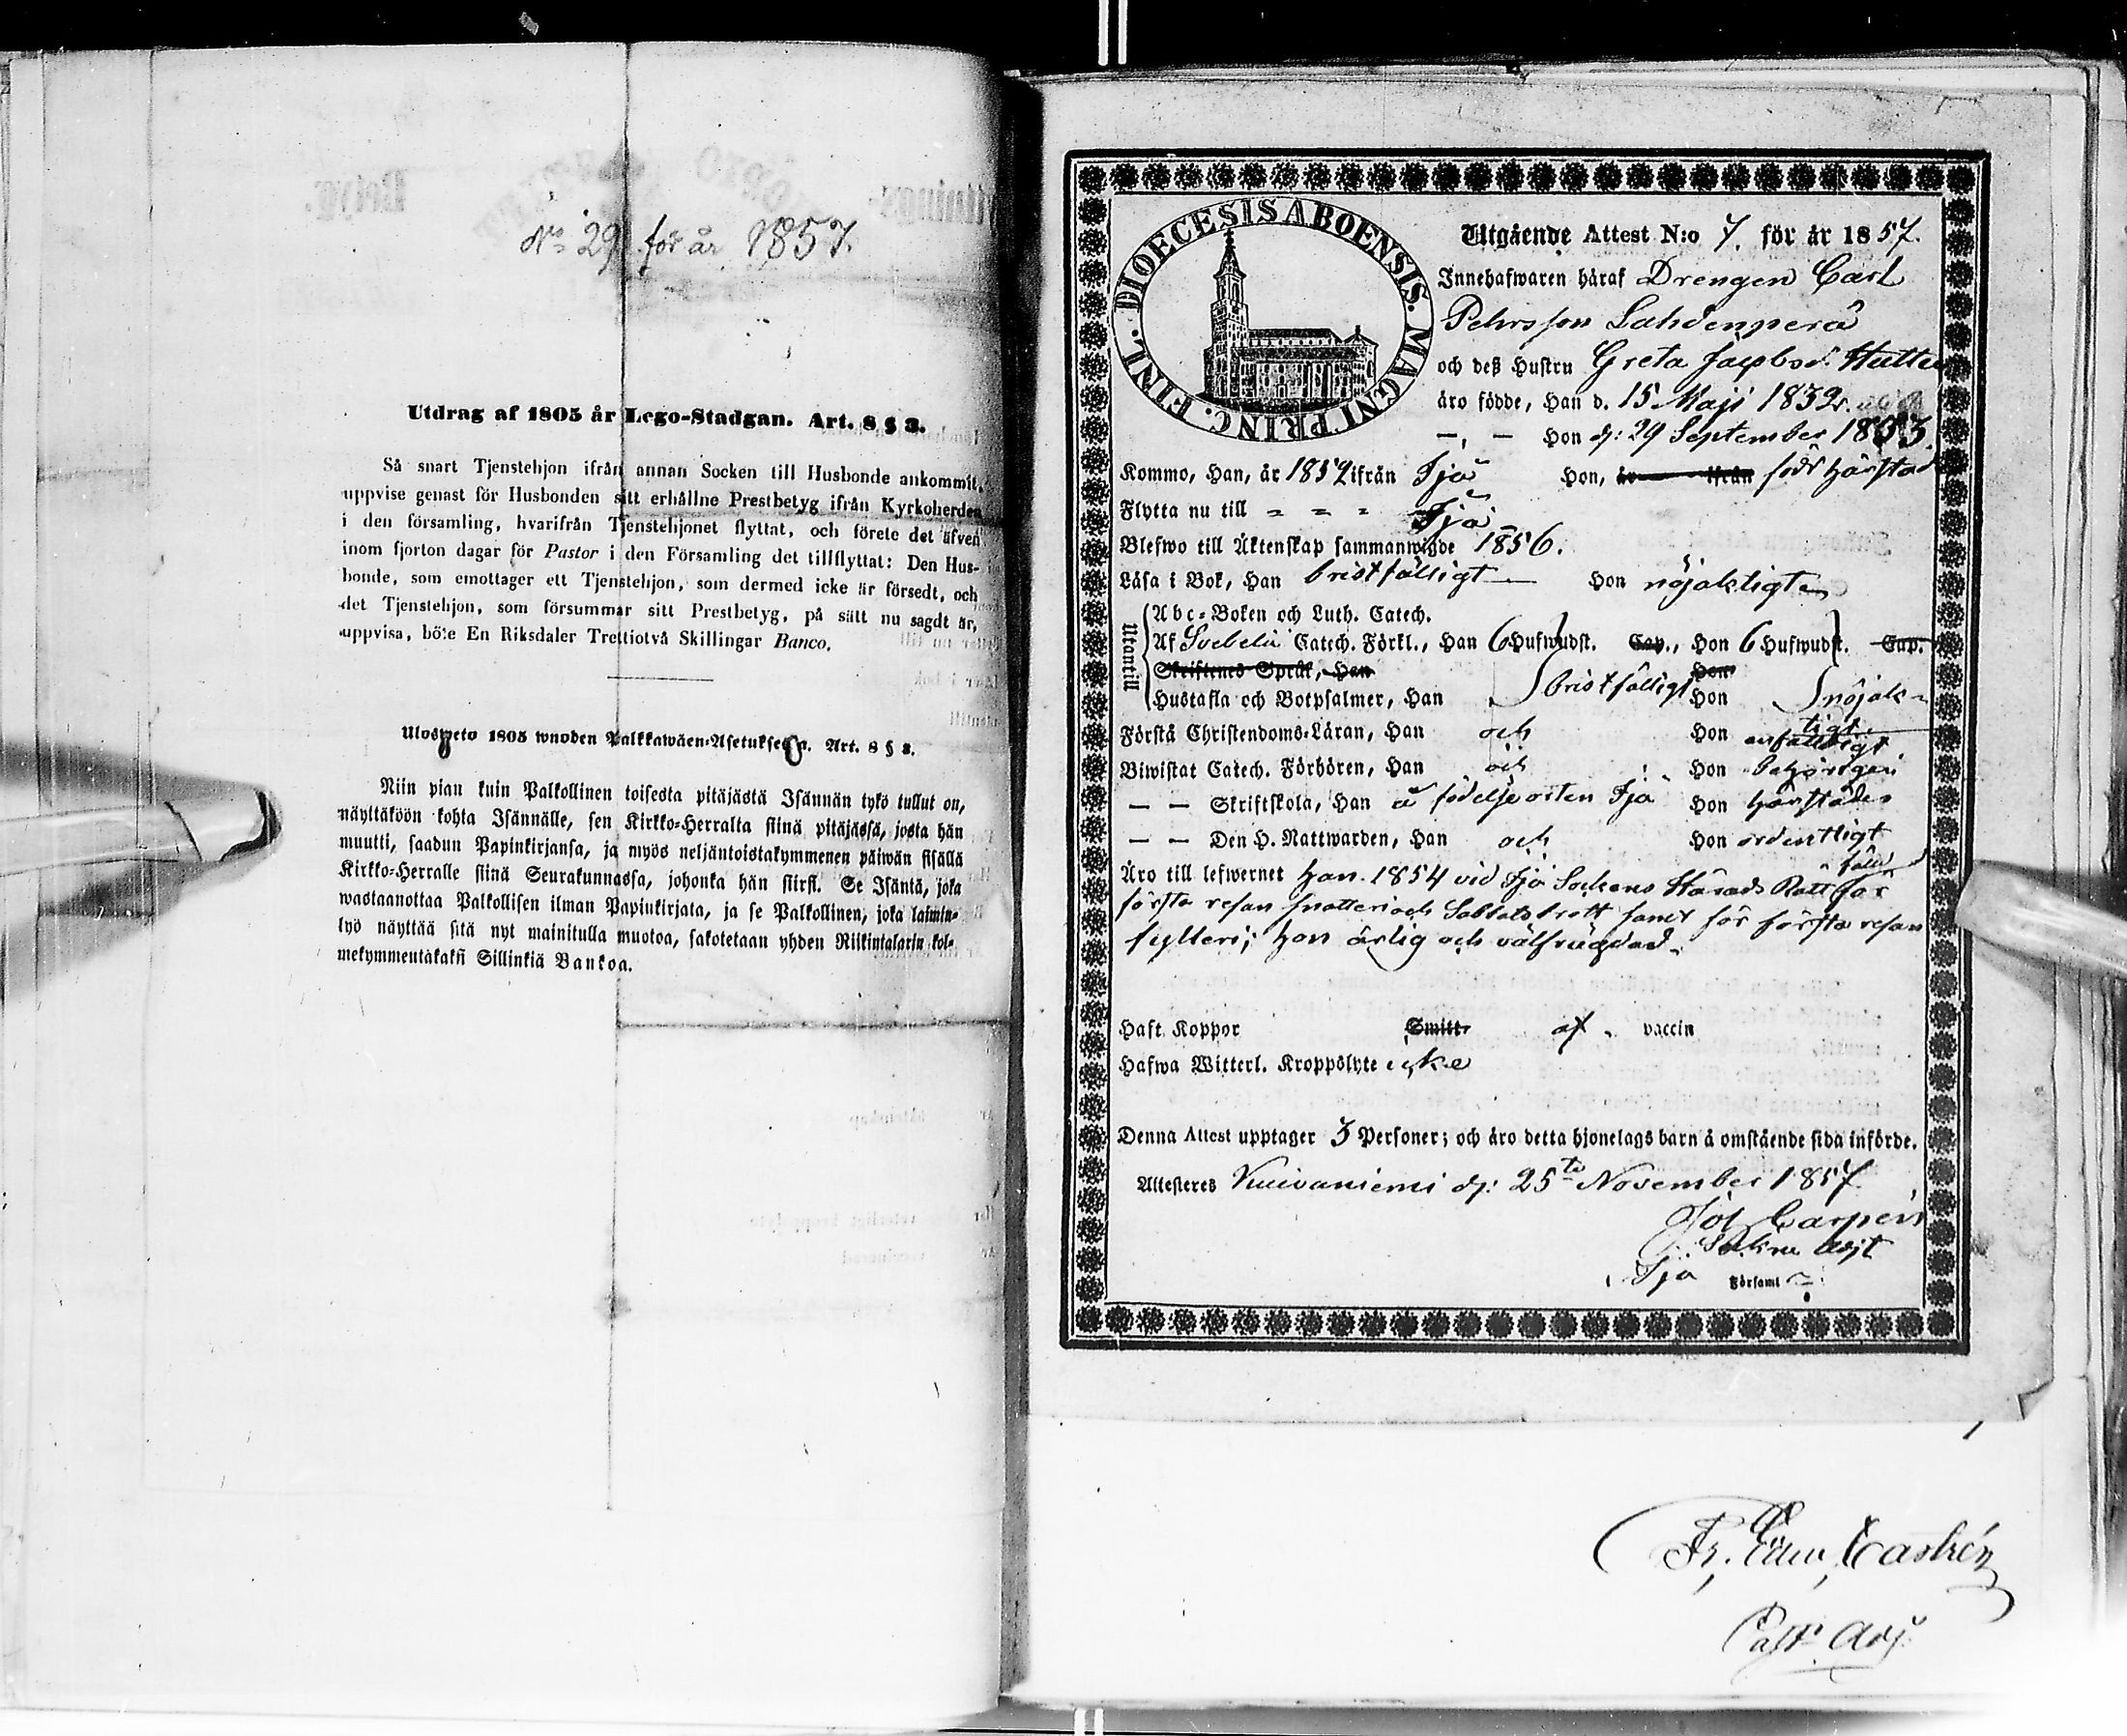 No 29 för år 1857.
Utdrag af 1805 år Lego-Stadgan. Art. 8 § 3.
Så snart Tjenstehjon ifrån annan Socken till Husbonde ankommit,
uppvise genast för Husbonden sitt erhållne Prestbetyg ifrån Kyrkoherden
i den församling, hvarifrån Tjenstehjonet flyttat, och förete det äfven
inom fjorton dagar för Pastor i den Församling det tillflyttat: Den Hus-
bonde, som emottager ett Tjenstehjon, som dermed icke är försedt, och
det Tjenstehjon, som försummar sitt Prestbetyg, på sätt nu sagdt är,
uppvisa, böte En Riksdaler Trettiotvå Skillingar Banco.
Ulosweto 1805 wuoden Palkkawäen-Asetuksesta. Art. 8 § 3.
Niin pian kuin Palkollinen toisesta pitäjästä Isännän tykö tullut on,
näyttäköön kohta Isännälle, sen Kirkko-Herralta siinä pitäjässä, josta hän
muutti, saadun Papinkirjansa, ja myös neljäntoistakymmenen päiwän sisällä
Kirkko-Herralle siinä Seurakunnassa, johonka hän siirsi. Se Isäntä, joka
wastaanottaa Palkollisen ilman Papinkirjata, ja se Palkollinen, joka laimin-
lyö näyttää sitä nyt mainitulla muotoa, sakotetaan yhden Riikintalarin kol-
mekymmentäkaksi Sillinkiä Bankoa.
DIOECESIS ABOENSIS. MAGNI PRINC. FINL.
Utgående Attest N:o 7. för år 1857.
Innehafwaren häraf Drengen Carl
Pehrsson Lahdenperä
och deß Hustru Greta Jacobsd.
äro födde, Han d. 15 Maji 1832.
—, — Hon d: 29 September 1833
Kommo, Han, år ifrån Ijo Hon, år ifrån född härstäd
Flytta nu till = = = Ijo
Blefwo till Äktenskap sammanwigde 1856.
Läsa i Bok, Han bristfälligt — Hon nöjaktigt
Utantill
Abc-Boken och Luth. Catech.
Af Svebelii Catech. Förkl., Han 6 Hufwudst. Cap., Hon 6 Hufwudst. Cap.
Skriftenes Språk, Han Hon
Hustafla och Botpsalmer, Han bristfälligt Hon nöjak-
tigt
Förstå Christendoms-Läran, Han och Hon enfaldigt
Biwistat Catech. Förhören, Han och Hon
— — Skriftskola, Han å födelseorten Ijo Hon härstädes
— — Den H. Nattwarden, Han och Hon ordentligt
Äro till lefwernet Han 1854 vid Ijo Sockens Härads Rätt fälld för
första resan snatteri och Sabbatsbrott samt för första resan
fylleri; hon ärlig och välfrägdad.
Haft Koppor Smitt af vaccin
Hafwa Witterl. Kroppslyte icke
Denna Attest upptager 3 Personer; och äro detta hjonelags barn å omstående sida införde.
Attesteres Kuivaniemi d: 25te November 1857
Ijo Församl
Castrén
Past. Adj.